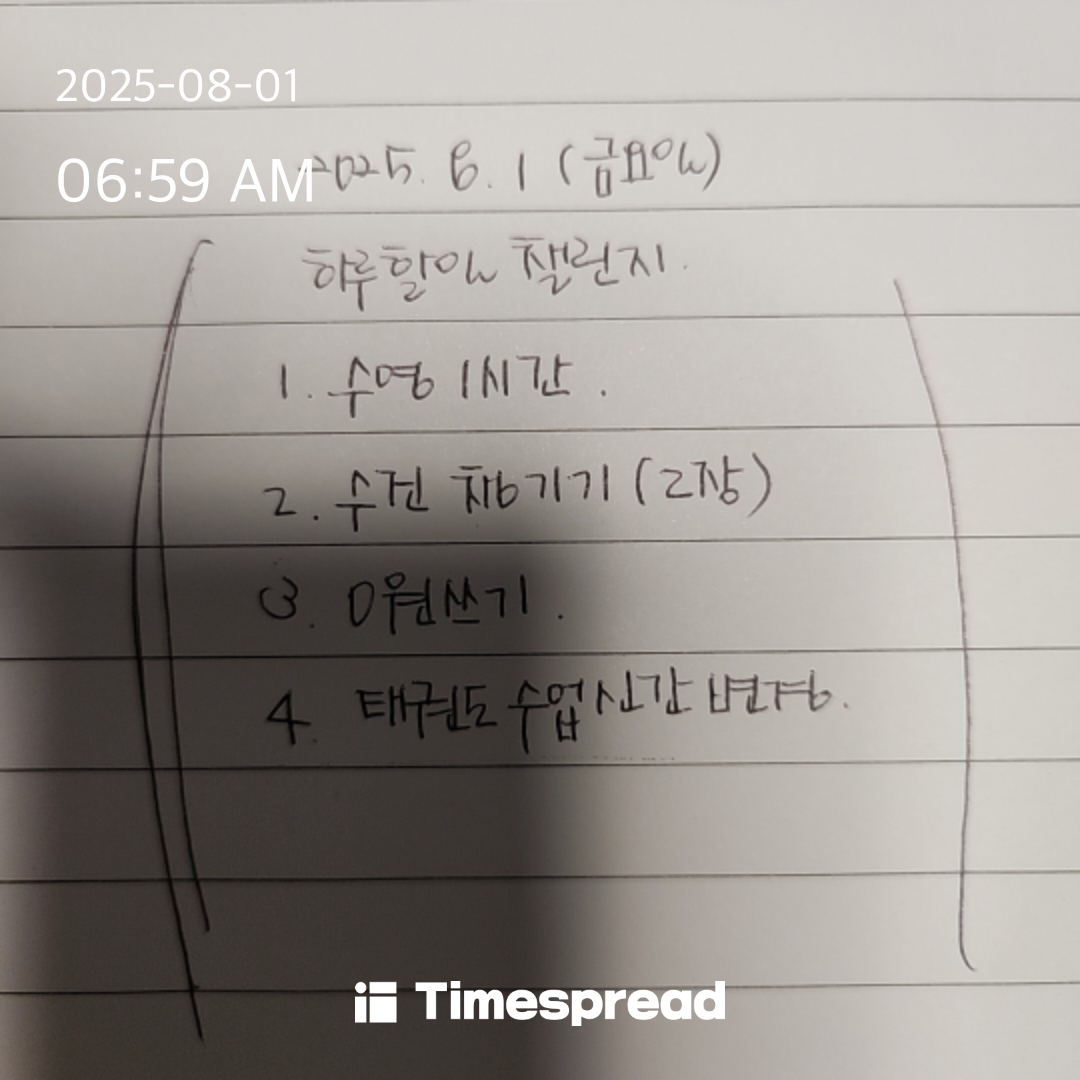 2025-08-01
06:59 AM
2025. 8. 1 (금요일)
하루할일 챌린지.
1. 수영 1시간.
2. 수건 챙기기 (2장)
3. 0원쓰기.
4. 태권도 수업시간 변경.
Timespread